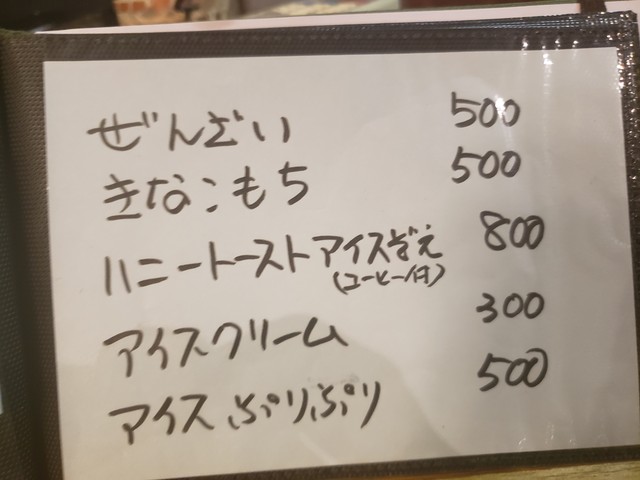 ぜんざい 500
きなこもち 500
ハニートーストアイスぞえ 800
(コーヒー付)
アイスクリーム 300
アイスぷりぷり 500